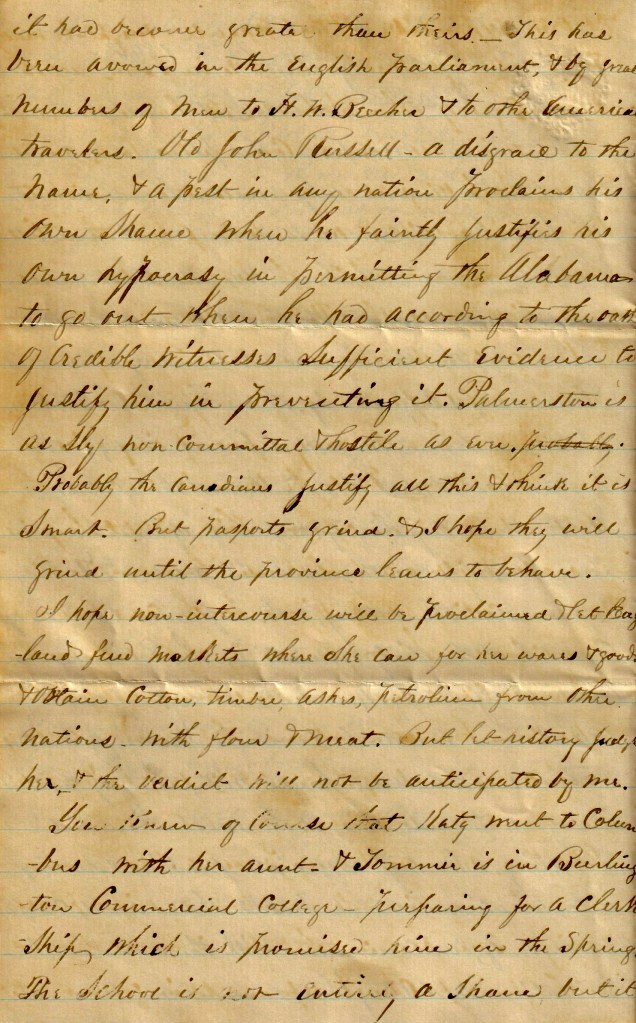 it had become greater than theirs_ This has
been avowed in the English Parliament, & by great
numbers of men to H. W. Beecher & to other America
travelers. Old John Russell - a disgrace to the
name, & a pest in any nation proclaims his
own shame when he faintly justifies his
own hypocrasy in permitting the Alabama
to go out when he had according to the oath
of credible witnesses sufficient evidence to
justify him in preventing it. Palmerston is
as sly non-committal & hostile as ever. probably.
Probably the Canadians justify all this & think it is
smart. But pasports grind. & I hope they will
grind until the province learns to behave.
I hope non-intercourse will be proclaimed & let Eng
-land find markets where she can for her wares & goods
& obtain cotton, timber, ashes, petrolium from other
nations - with flour & meat. But let history judge
her, & the verdict will not be anticipated by me.
You knew of course that Katy went to Colum
-bus with her aunt - & Tommie is in Burling
-ton Commercial College - preparing for a clerk
-ship, which is promised him in the Spring.
The School is not entirely a sham, but it